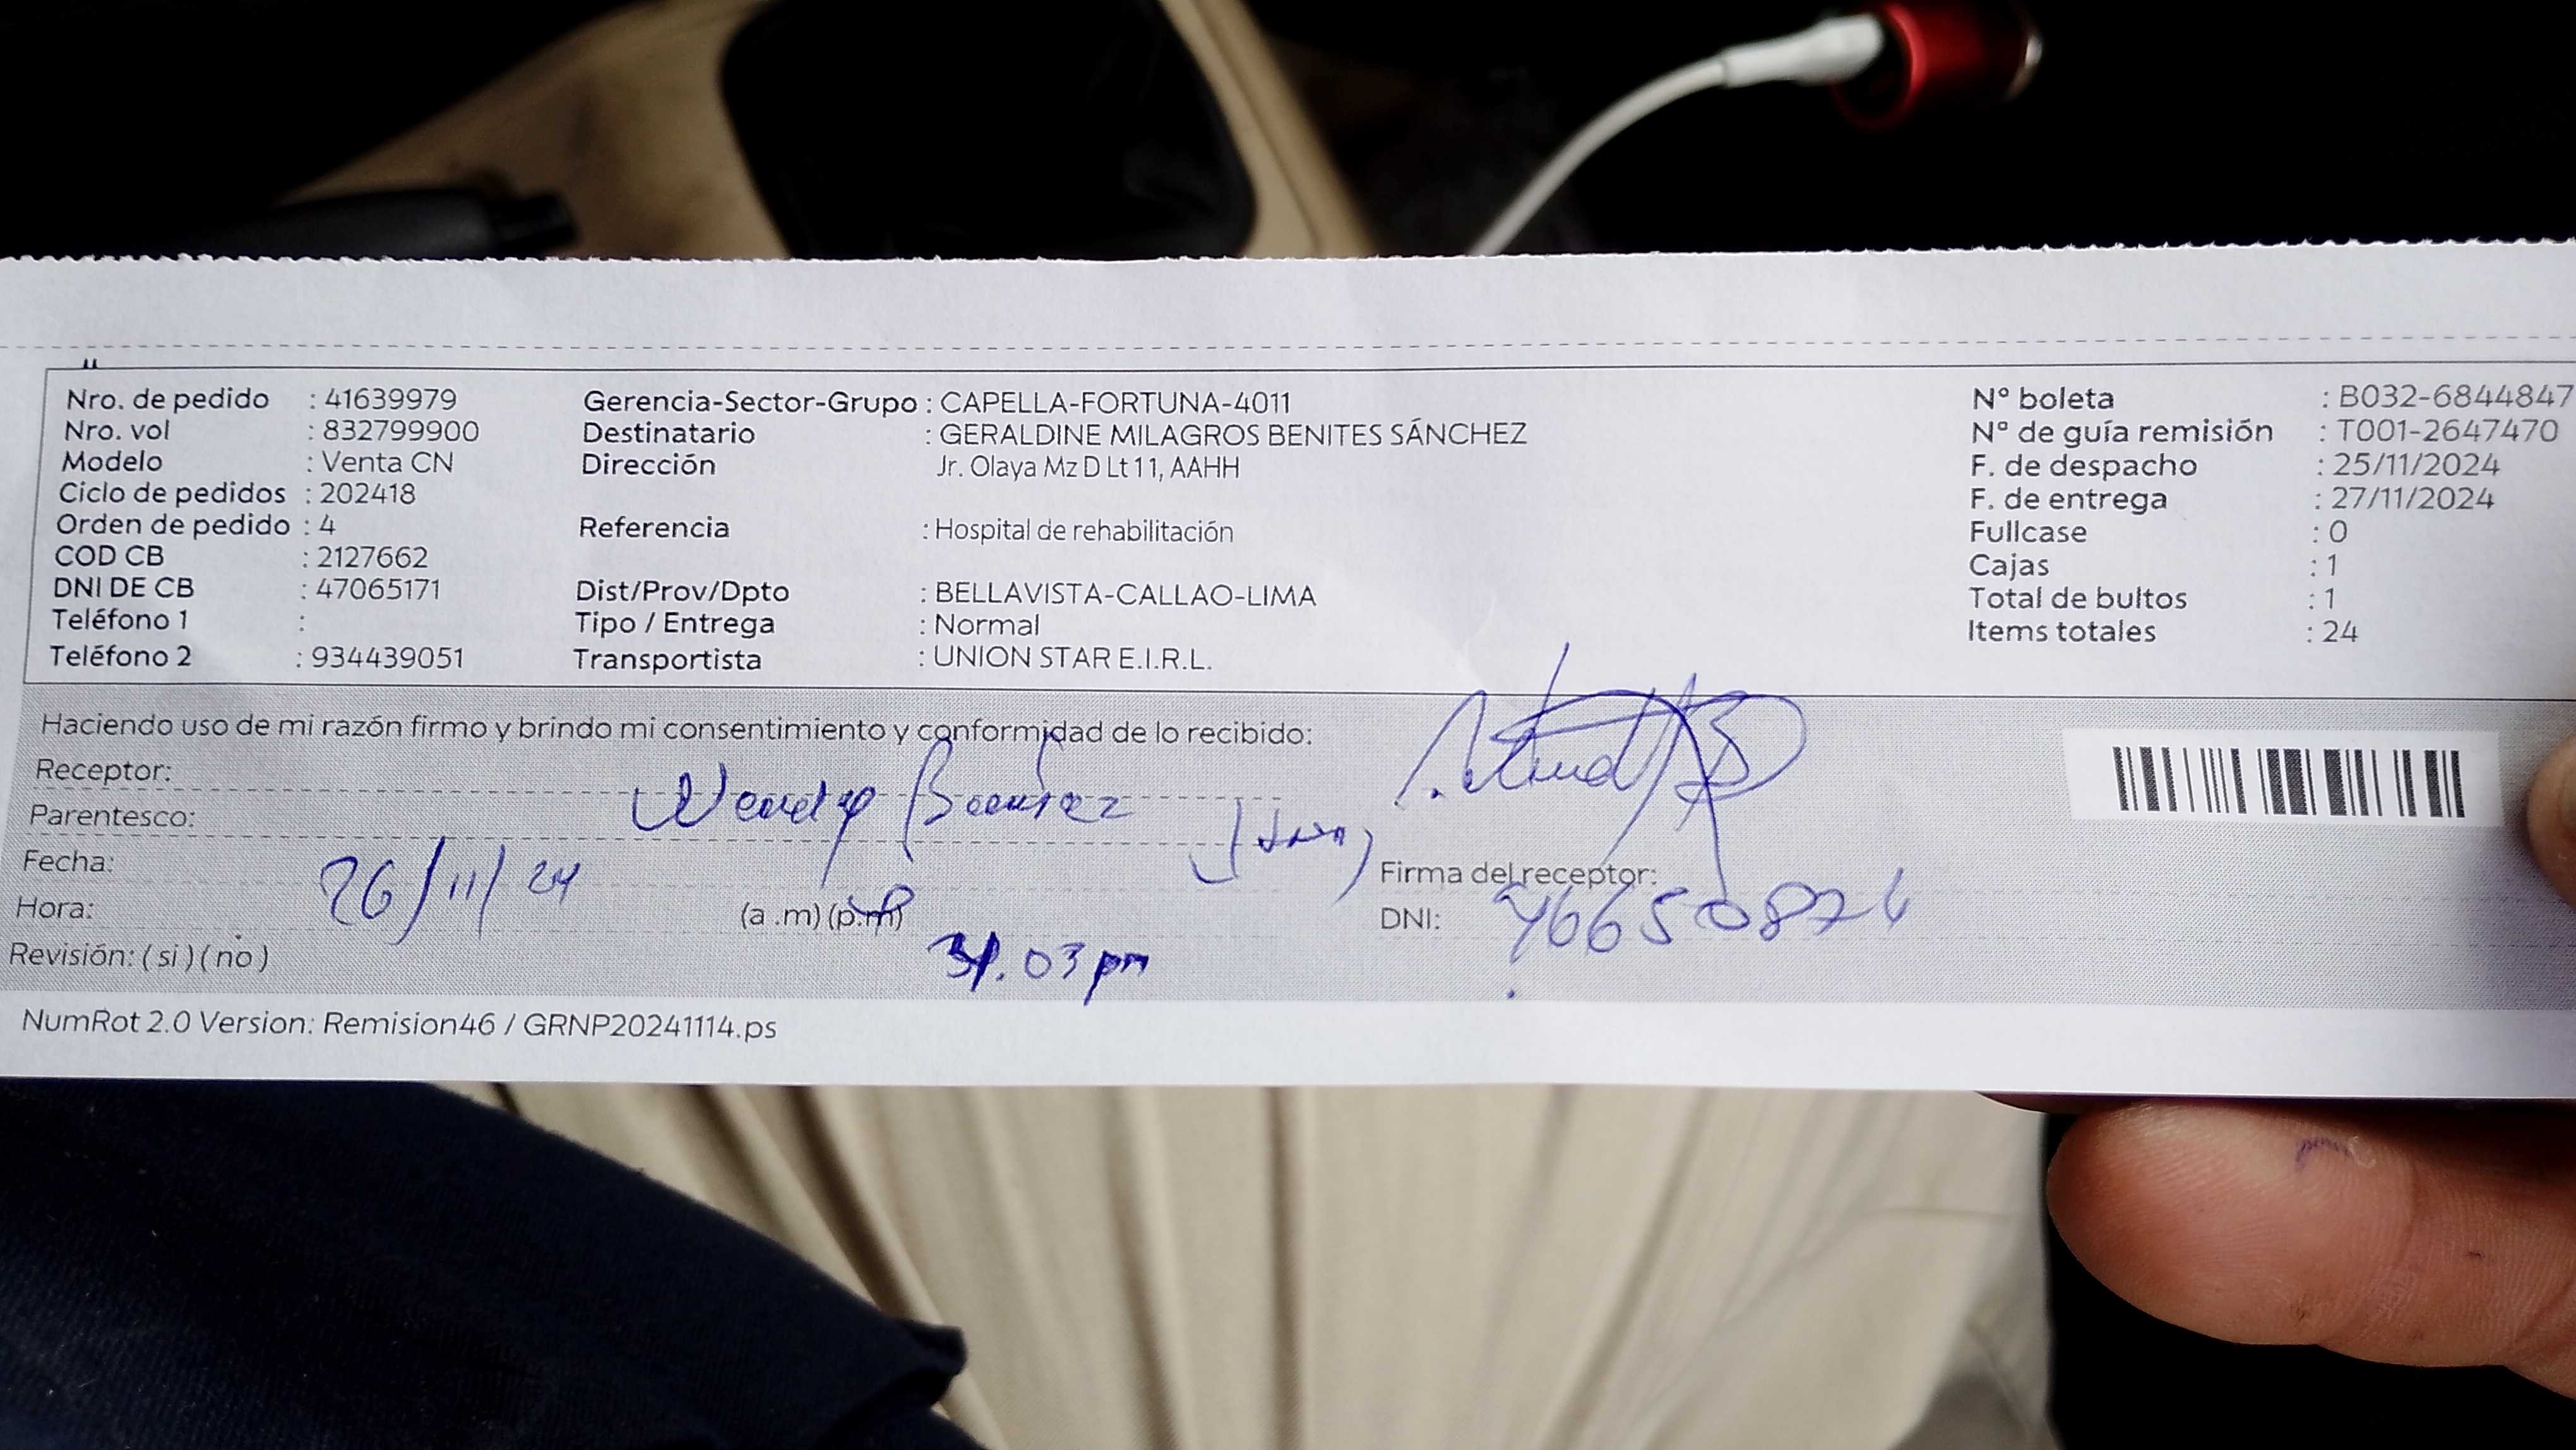 Nro. de pedido : 41639979 Gerencia-Sector-Grupo : CAPELLA-FORTUNA-4011 N° boleta : B032-6844847
Nro. vol : 832799900 Destinatario : GERALDINE MILAGROS BENITES SÁNCHEZ N° de guía remisión : T001-2647470
Modelo : Venta CN Dirección Jr. Olaya Mz D Lt 11, AAHH F. de despacho : 25/11/2024
Ciclo de pedidos : 202418 F. de entrega : 27/11/2024
Orden de pedido : 4 Referencia : Hospital de rehabilitación Fullcase : 0
COD CB : 2127662 Cajas : 1
DNI DE CB : 47065171 Dist/Prov/Dpto : BELLAVISTA-CALLAO-LIMA Total de bultos : 1
Teléfono 1 : Tipo / Entrega : Normal Items totales : 24
Teléfono 2 : 934439051 Transportista : UNION STAR E.I.R.L.
Haciendo uso de mi razón firmo y brindo mi consentimiento y conformidad de lo recibido:
Receptor: Wendy
Parentesco:
Fecha: 26/11/24 Firma del receptor:
Hora: (a .m) (p.m) 03 pm DNI:
Revisión: ( si ) ( no )
NumRot 2.0 Version: Remision46 / GRNP20241114.ps